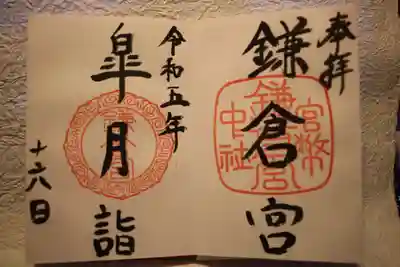 奉拝
鎌倉宮
官幣中社
鎌倉宮
令和五年
皐月詣
十六日